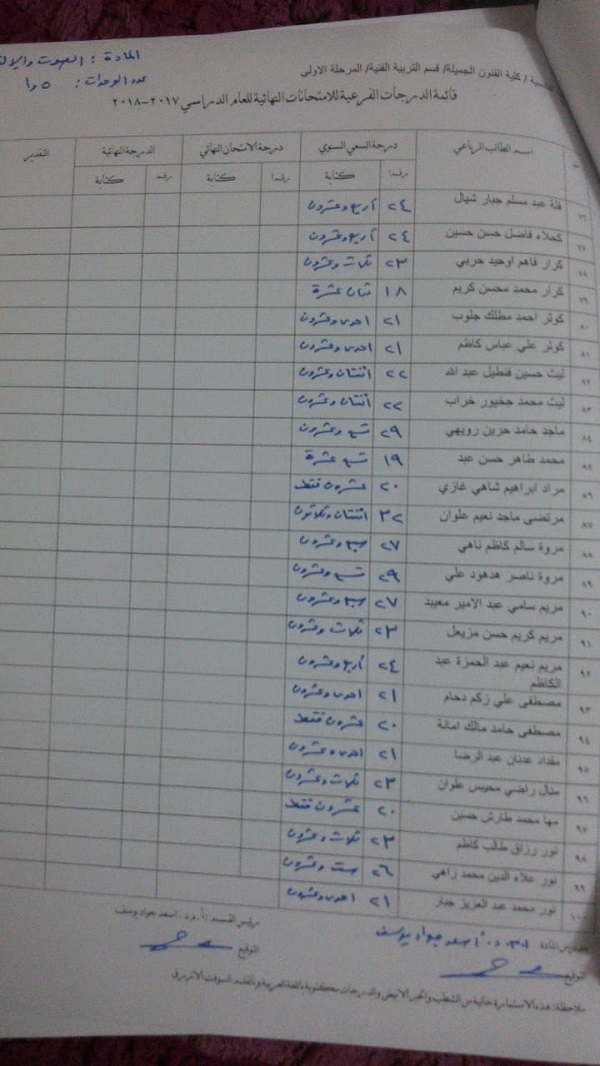 المادة : الصوت والإلقاء
عدد الوحدات : ١٥
/ كلية الفنون الجميلة/ قسم التربية الفنية/ المرحلة الاولى
قائمة الدرجات الفرعية للامتحانات النهائية للعام الدراسي ٢٠١٧-٢٠١٨
ت اسم الطالب الرباعي درجة السعي السنوي درجة الامتحان النهائي الدرجة النهائية التقدير
رقما كتابة رقما كتابة رقما كتابة
٧٦ فلة عبد مسلم جبار شيال ٢٤ أربع وعشرون
٧٧ كحلاء فاضل حسن حسين ٢٤ أربع وعشرون
٧٨ كرار فاهم اوحيد حربي ٢٣ ثلاث وعشرون
٧٩ كرار محمد محسن كريم ١٨ ثمان عشرة
٨٠ كوثر احمد مطلك جلوب ٢١ احدى وعشرون
٨١ كوثر علي عباس كاظم ٢١ احدى وعشرون
٨٢ ليث حسين فنطيل عبد الله ٢٢ اثنتان وعشرون
٨٣ ليث محمد جخيور خراب ٢٢ اثنتان وعشرون
٨٤ ماجد حامد حرين رويهي ٢٩ تسع وعشرون
٨٥ محمد طاهر حسن عبد ١٩ تسع عشرة
٨٦ مراد ابراهيم شاهي غازي ٢٠ عشرون فقط
٨٧ مرتضى ماجد نعيم علوان ٣٢ اثنتان وثلاثون
٨٨ مروة سالم كاظم ناهي ٢٧ سبع وعشرون
٨٩ مروة ناصر هدهود علي ٢٩ تسع وعشرون
٩٠ مريم سامي عبد الامير معيبد ٢٧ سبع وعشرون
٩١ مريم كريم حسن مزيعل ٢٣ ثلاث وعشرون
٩٢ مريم نعيم عبد الحمزة عبد الكاظم ٢٤ أربع وعشرون
٩٣ مصطفى علي زكم دحام ٢١ احدى وعشرون
٩٤ مصطفى حامد مالك امانة ٢٠ عشرون فقط
٩٥ مقداد عدنان عبد الرضا ٢١ احدى وعشرون
٩٦ منال راضي محيبس علوان ٢٣ ثلاث وعشرون
٩٧ مها محمد طارش حسين ٢٠ عشرون فقط
٩٨ نور رزاق طالب كاظم ٢٣ ثلاث وعشرون
٩٩ نور علاء الدين محمد راهي ٢٦ ست وعشرون
١٠٠ نور محمد عبد العزيز جبار ٢١ احدى وعشرون
مدرس المادة أ.م.د. أسعد جواد يوسف رئيس القسم : أ.م.د. اسعد جواد يوسف
التوقيع التوقيع
ملاحظة: هذه الاستمارة خالية من الشطب والحبر الابيض والدرجات مكتوبة باللغة العربية وبالقلم السوفت الازرق